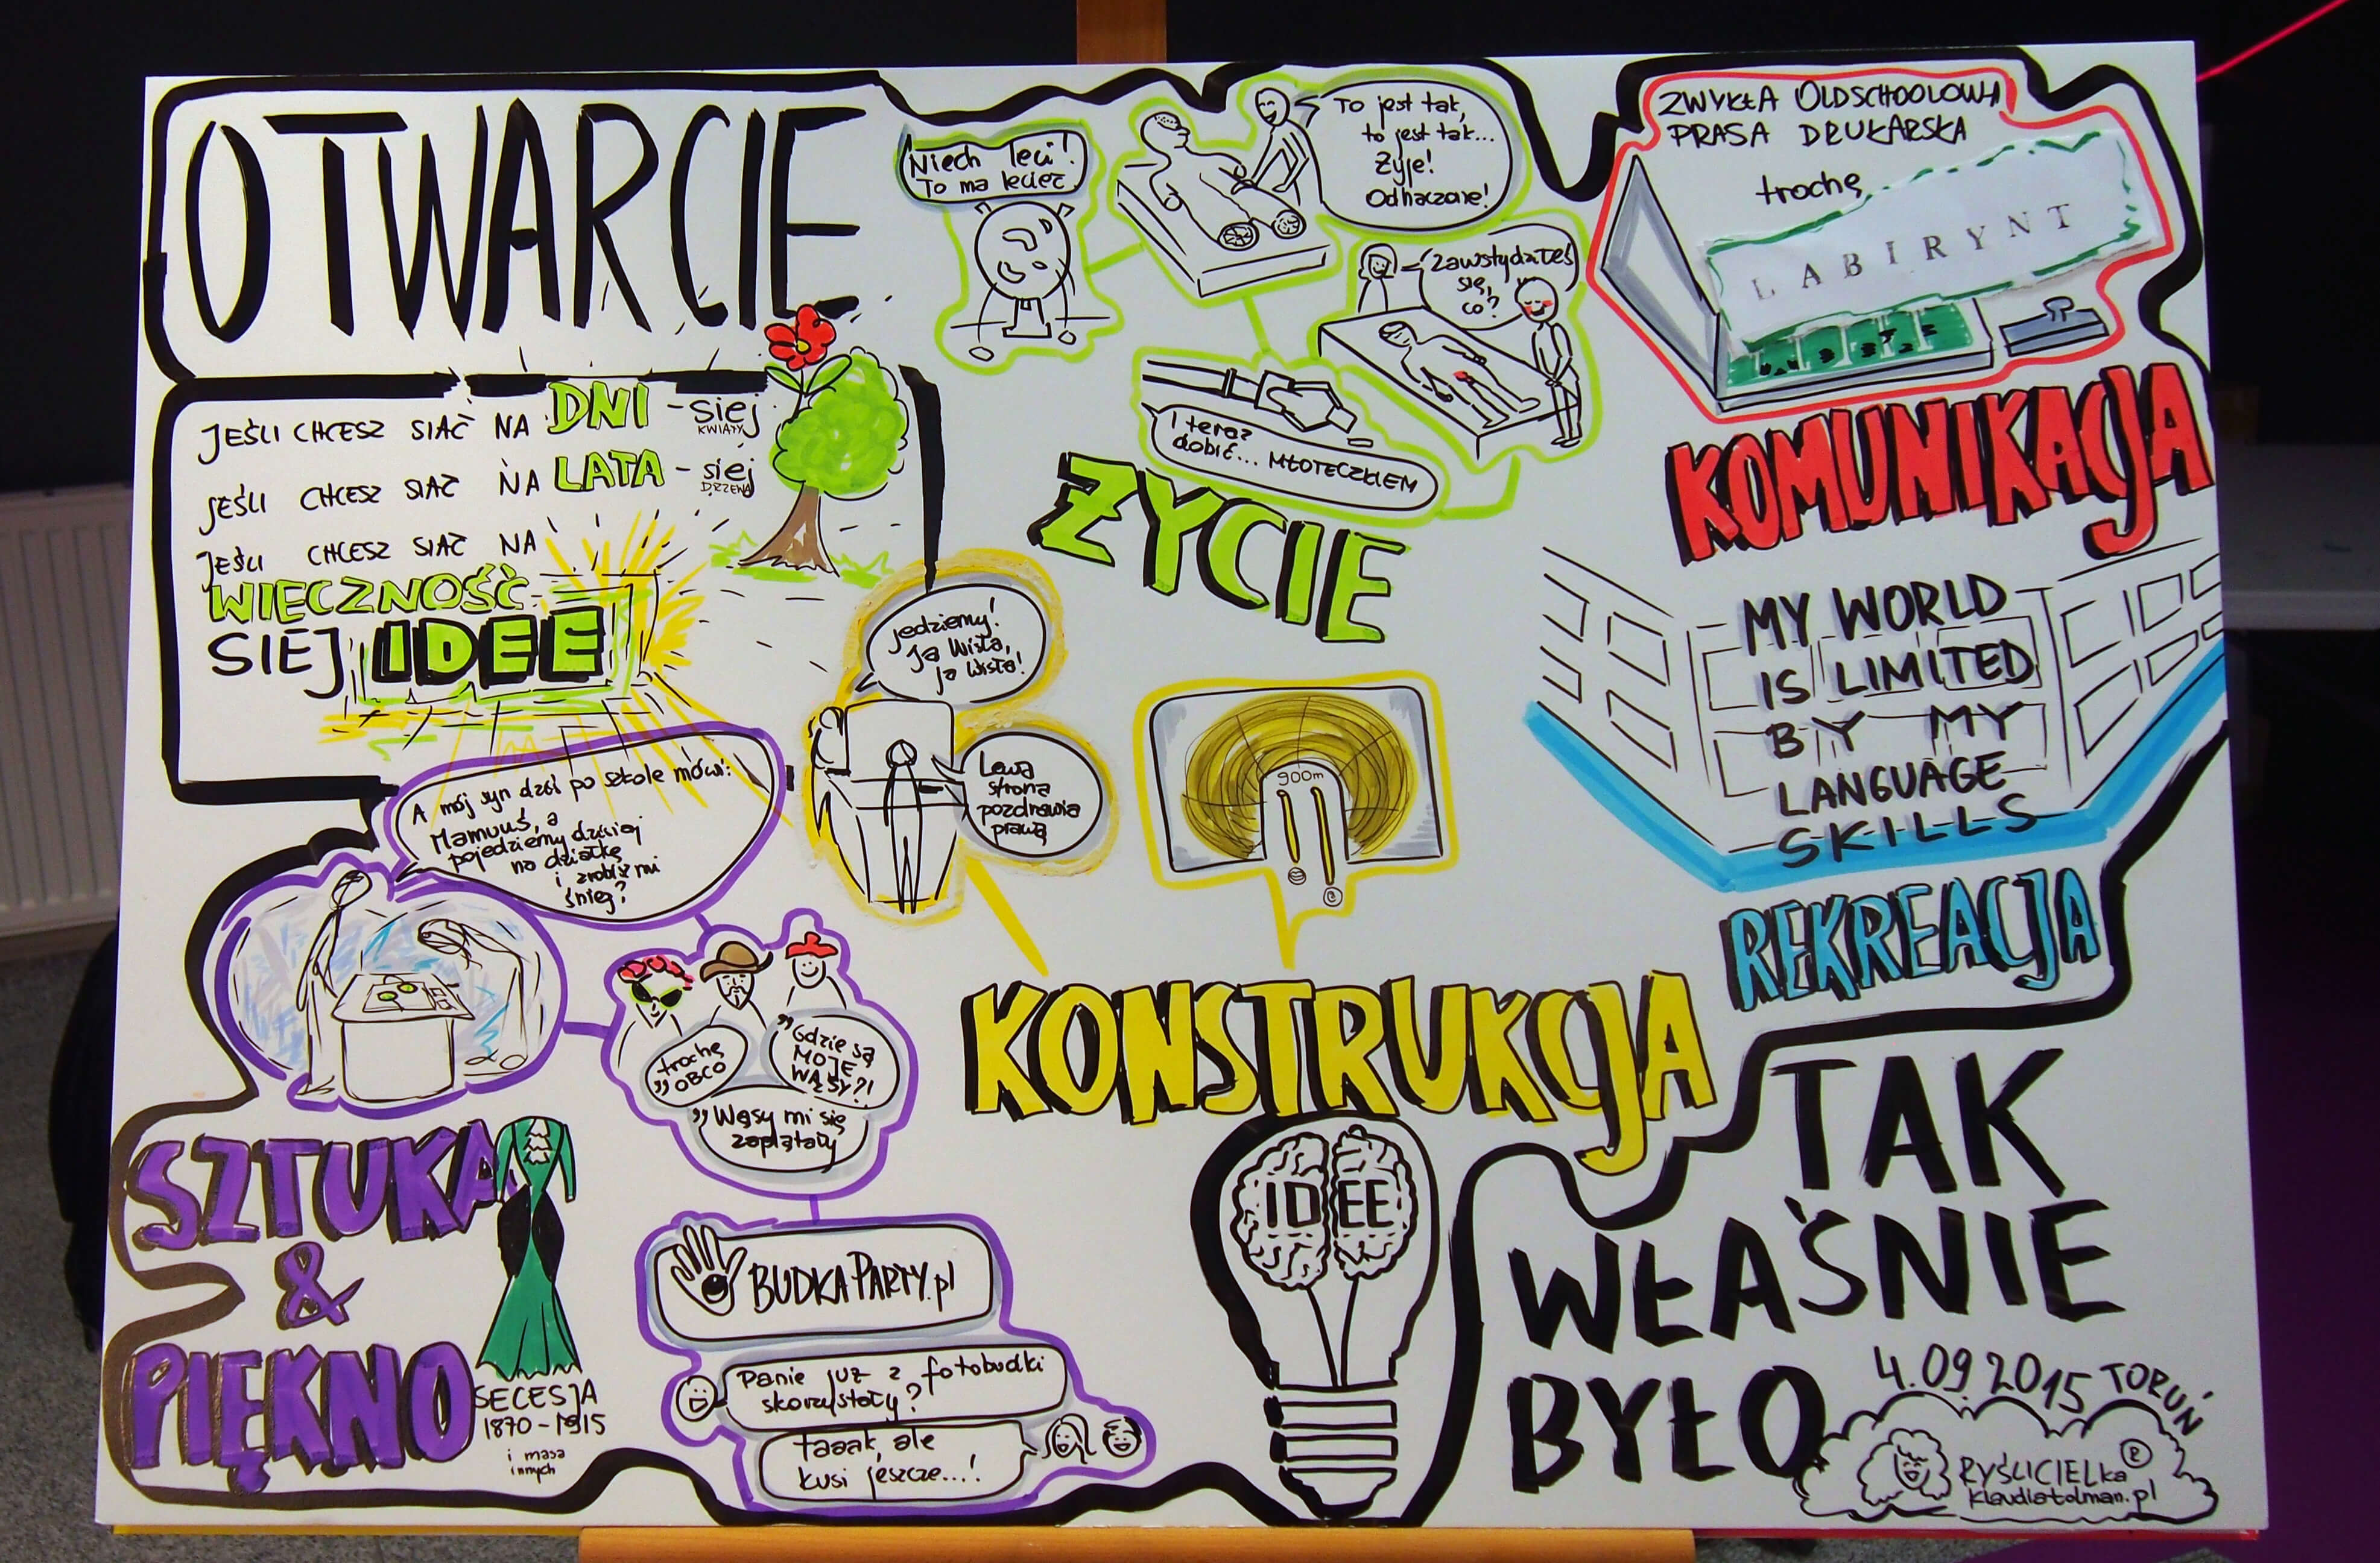 OTWARCIE
JEŚLI CHCESZ SIAĆ NA DNI - siej
KWIATY
JEŚLI CHCESZ SIAĆ NA LATA - siej
DRZEWA
JEŚLI CHCESZ SIAĆ NA
WIECZNOŚĆ
SIEJ IDEE
Niech leci!
To ma lecieć
To jest tak,
to jest tak...
Żyje!
Odhaczone!
Zawstydziłeś
się,
co?
I teraz
dobić... MŁOTECZKIEM
ŻYCIE
ZWYKŁA OLDSCHOOLOWA
PRASA DRUKARSKA
trochę
LABIRYNT
KOMUNIKACJA
MY WORLD
IS LIMITED
BY MY
LANGUAGE
SKILLS
REKREACJA
Jedziemy!
Ja Wisła,
ja Wisła!
Lewa
strona
pozdrawia
prawą
900m
KONSTRUKCJA
A mój syn dziś po szkole mówi:
Mamuś, a
pojedziemy dzisiaj
na działkę
i zrobisz mi
śnieg?
trochę
"OBCO
"Gdzie są
MOJE
WĄSY?!
"Wąsy mi się
zaplątały
SZTUKA
&
PIĘKNO
SECESJA
1870-1915
i masa
innych
BUDKAPARTY.pl
Panie już z fotobudki
skorzystały?
taaak, ale
kusi jeszcze...!
IDEE
TAK
WŁAŚNIE
BYŁO
4.09.2015 TORUŃ
RYŚLICIELka ®
klaudiatolman.pl